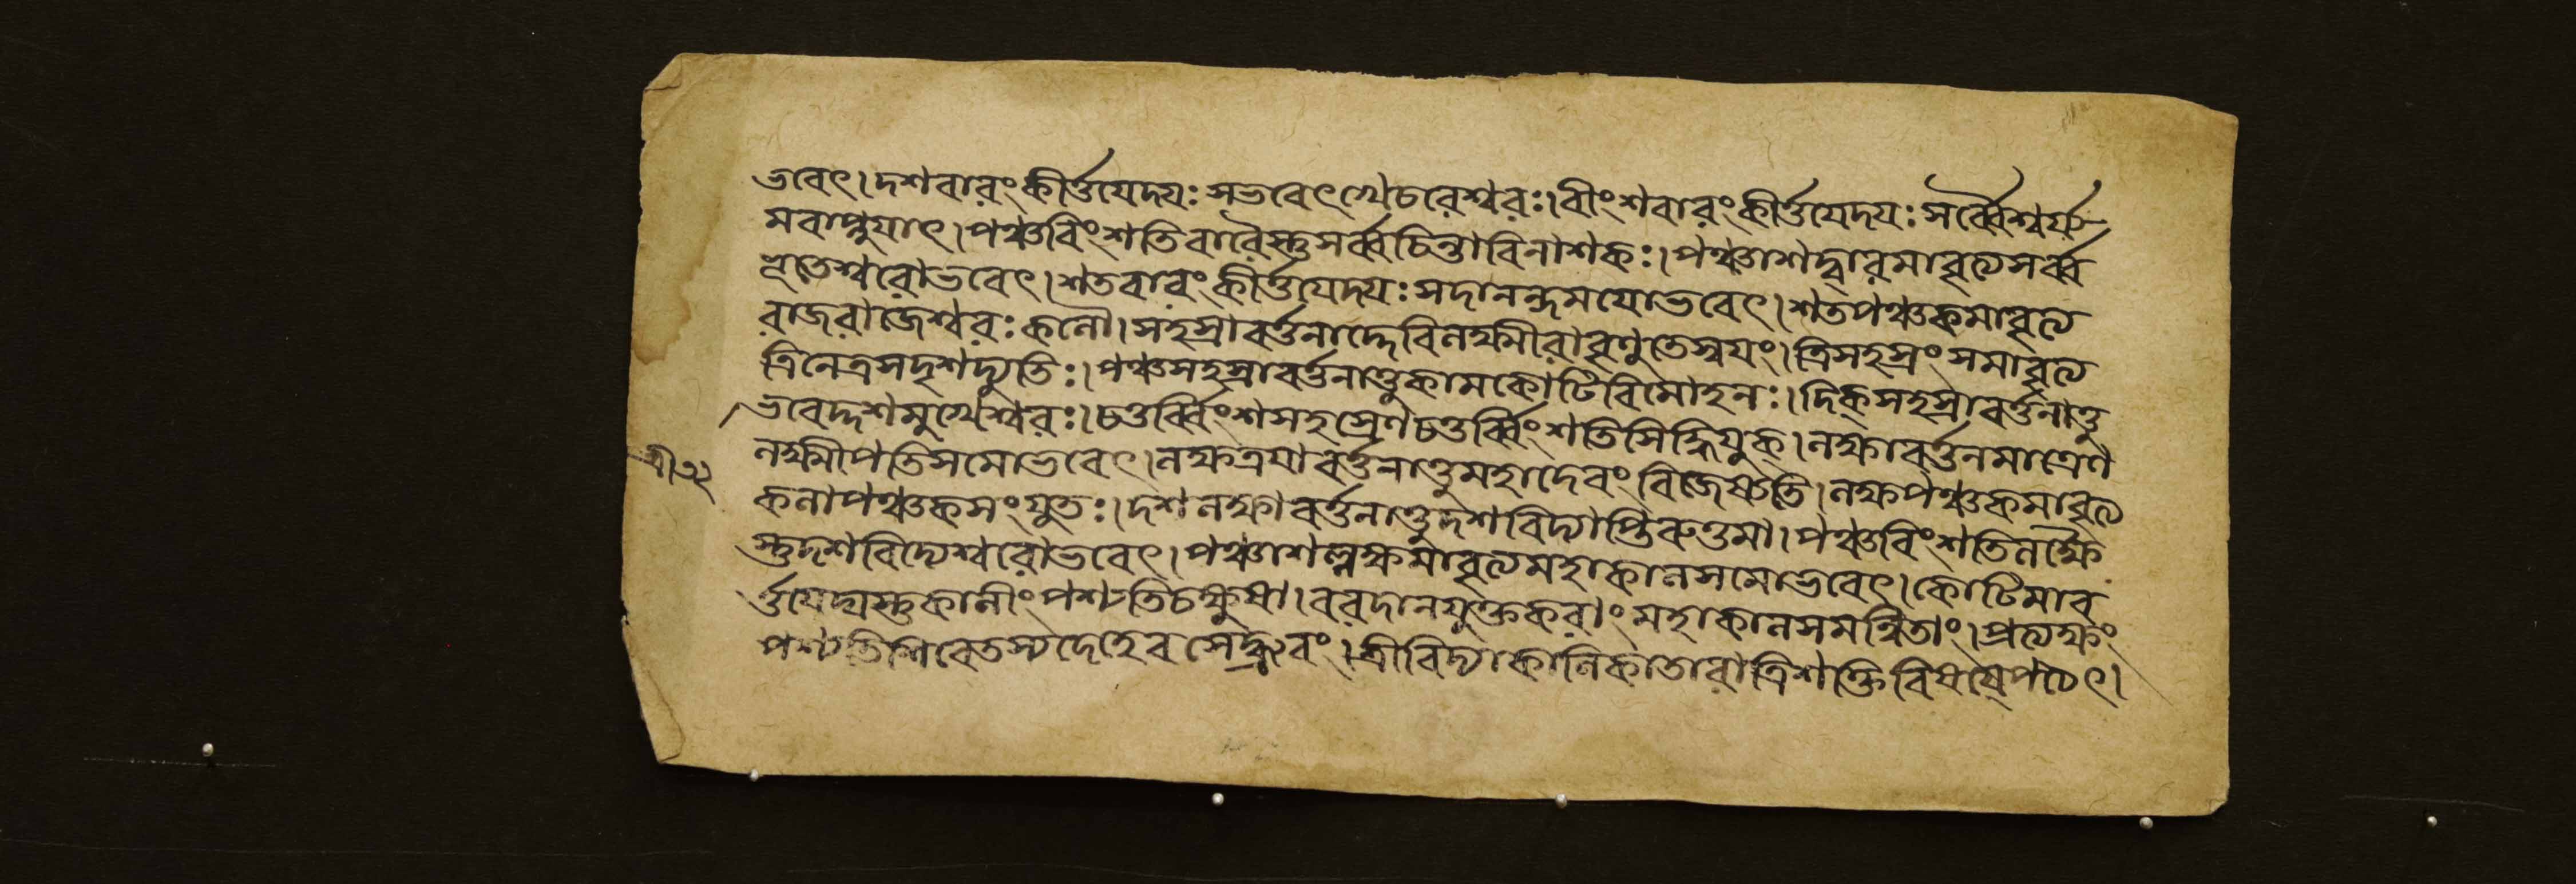 ভবেৎ।দশবারংকীর্ত্তয়েদযঃসভবেৎখেচরেশ্বরঃ।বীংশবারংকীর্ত্তয়েদযঃসর্ব্বৈশ্বর্য্য
মবাপ্নুয়াৎ।পঞ্চবিংশতিবারৈস্তুসর্ব্বচিন্তাবিনাশকঃ।পঞ্চাশদ্বারমাবৃত্যসর্ব্ব
ভূতেশ্বরোভবেৎ।শতবারংকীর্ত্তয়েদযঃসদানন্দময়োভবেৎ।শতপঞ্চকমাবৃত্য
রাজরাজেশ্বরঃকলৌ।সহস্রাবর্ত্তনাদ্দেবিলক্ষ্মীরাবৃণুতেস্বয়ং।ত্রিসহস্রংসমাবৃত্য
ত্রিনেত্রসদৃশদ্যুতিঃ।পঞ্চসহস্রাবর্ত্তনাত্তুকামকোটিবিমোহনঃ।দিক্সহস্রাবর্ত্তনাত্তু
ভবেদ্দশমুখেশ্বরঃ।চতুর্ব্বিংশসহস্রেণচতুর্ব্বিংশতিসিদ্ধিযুক্।লক্ষাবর্ত্তনমাত্রেণ
লক্ষ্মীপতিসমোভবেৎ।লক্ষত্রয়াবর্ত্তনাত্তুমহাদেবংবিজেষ্যতি।লক্ষপঞ্চকমাবৃত্য
শ্রী৩২
কলাপঞ্চকসংযুতঃ।দশলক্ষাবর্ত্তনাত্তুদশবিদ্যাপ্তিরুত্তমা।পঞ্চবিংশতিলক্ষৈ
স্তুদশবিদ্যেশ্বরোভবেৎ।পঞ্চাশল্লক্ষমাবৃত্যমহাকালসমোভবেৎ।কোটিমাব
র্ত্তয়েদ্যস্তুকালীংপশ্যতিচক্ষুষা।বরদানযুক্তকরাংমহাকালসমন্বিতাং।প্রত্যক্ষং
পশ্যতিশিবেতস্যদেহেবসেদ্ধ্রুবং।শ্রীবিদ্যাকালিকাতারাত্রিশক্তিবিষষেপঠেৎ।